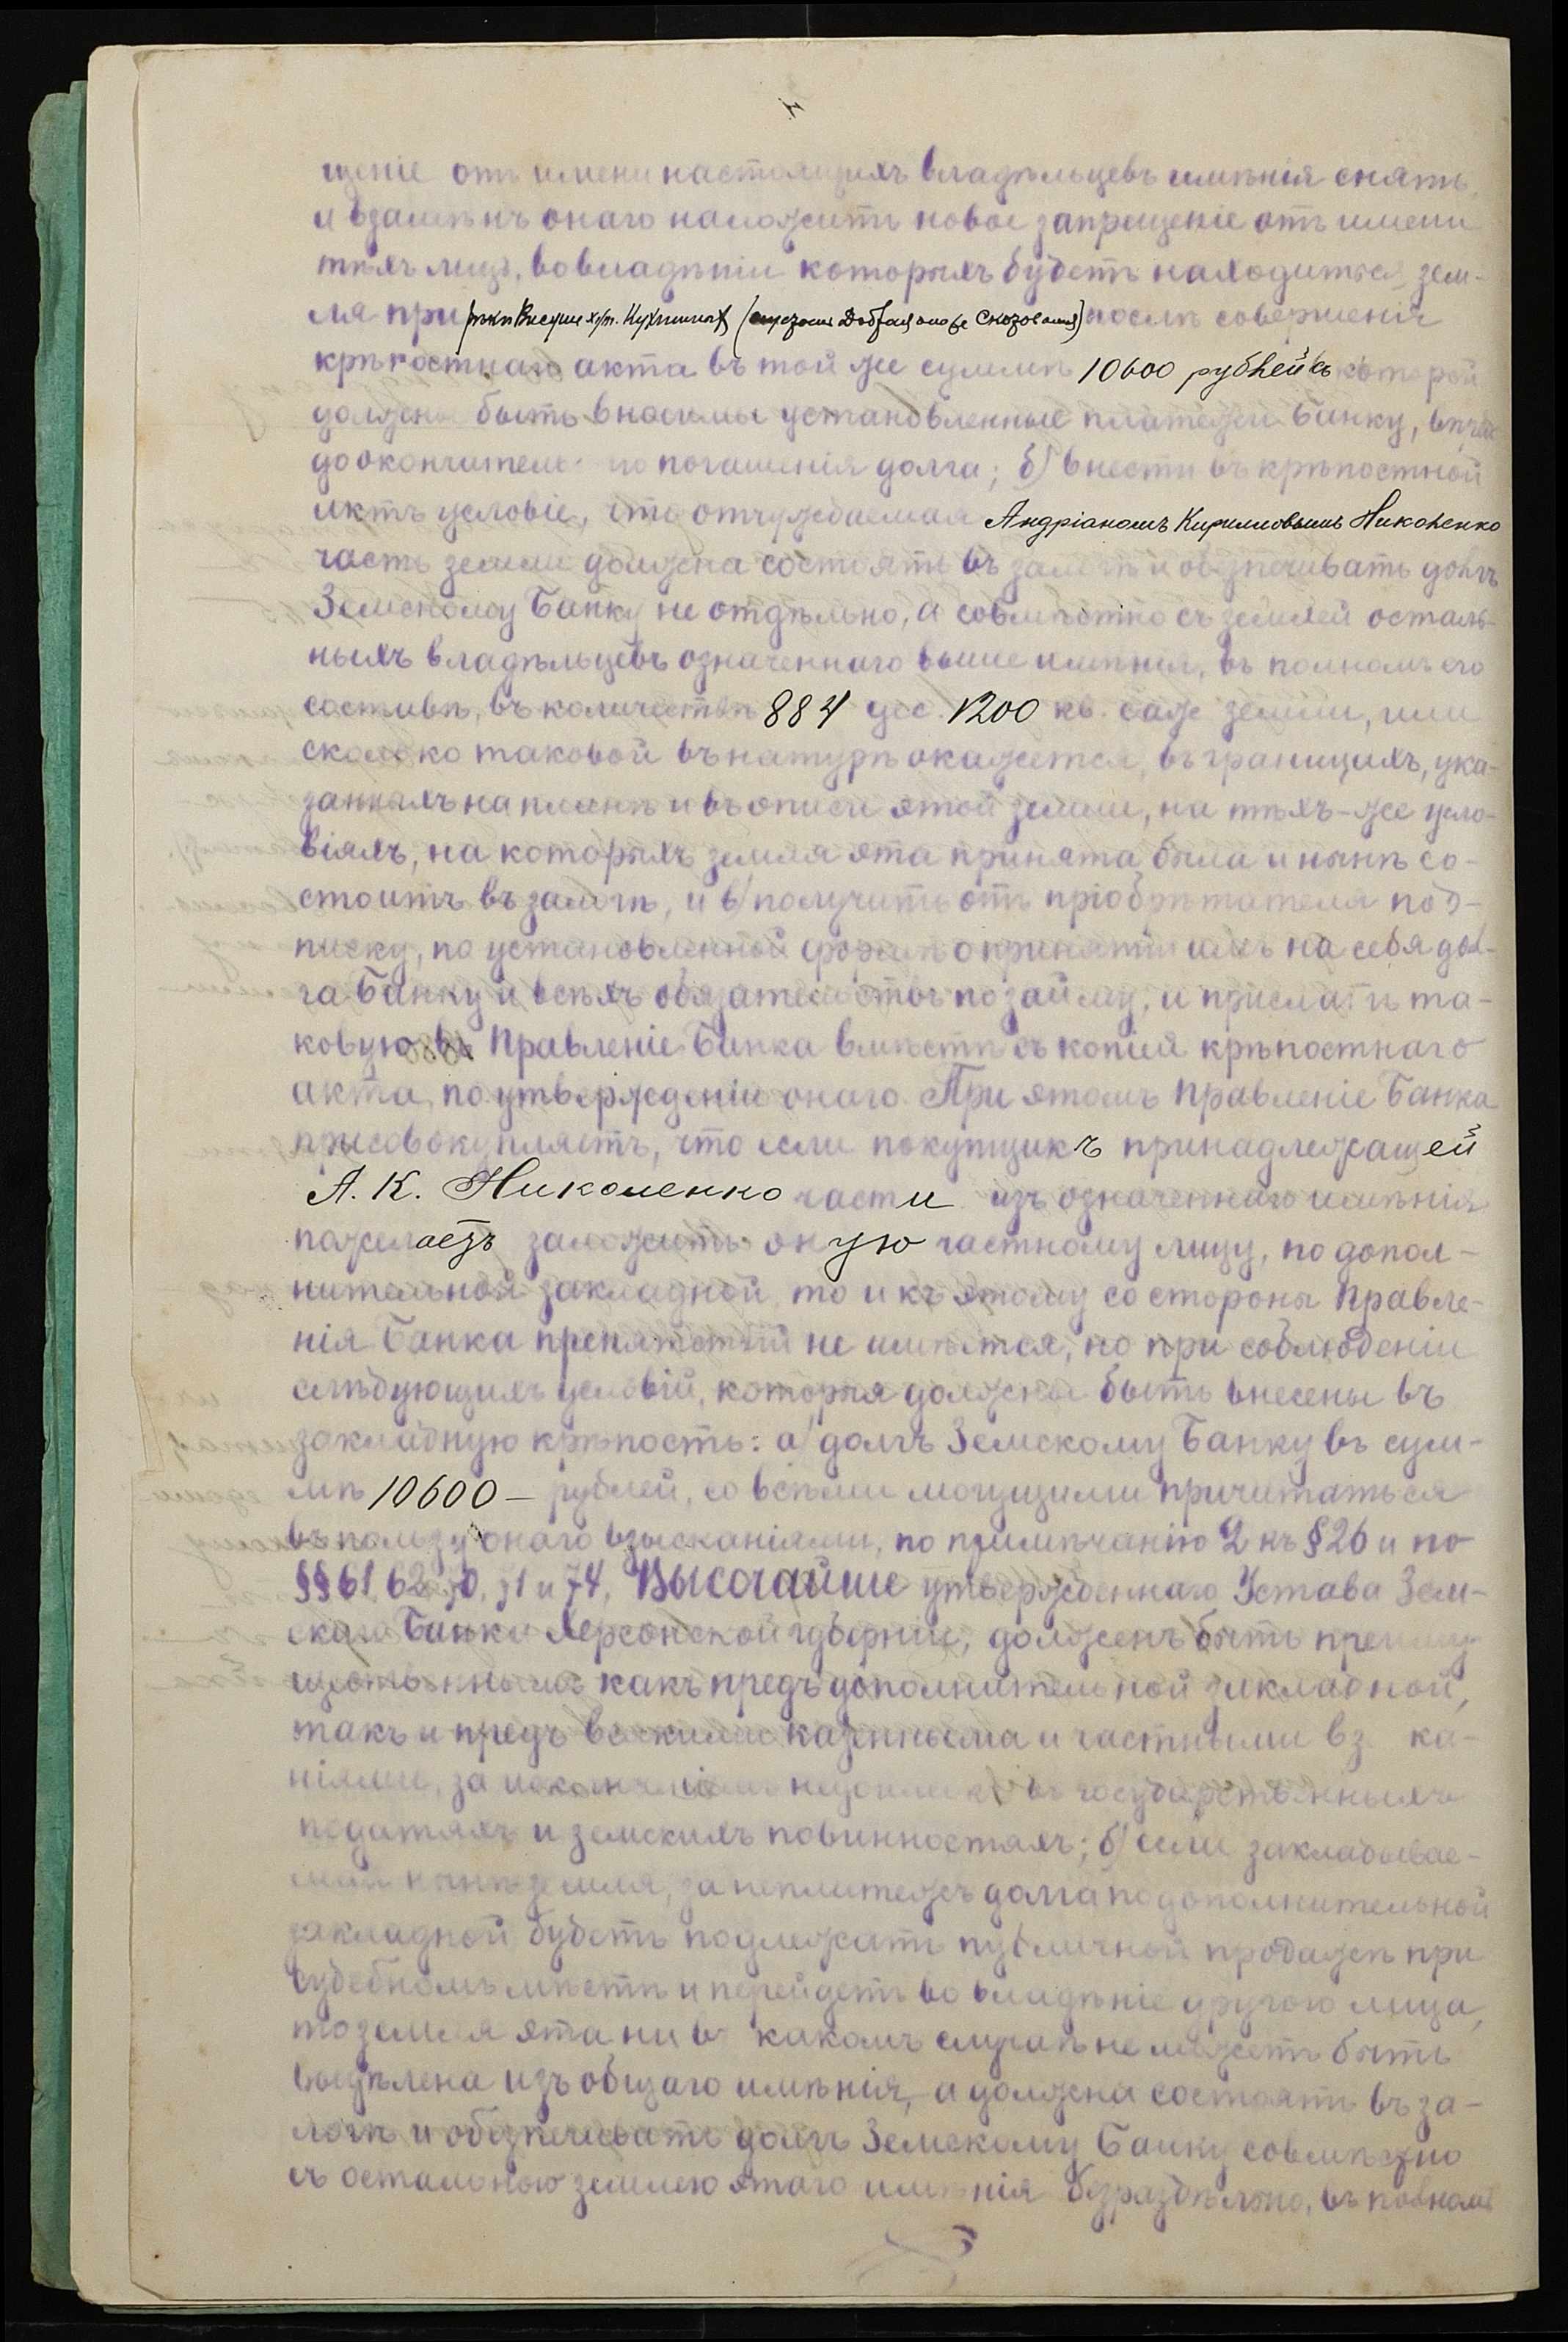 щеніе отъ имени настоящихъ владѣльцевъ имѣнія снять,
и взамѣнъ онаго наложить новое запрещеніе отъ имени
тѣхъ лицъ, во владѣніи которыхъ будетъ находиться зем-
ля при рѣкѣ Висуни хут. (Доброе) послѣ совершенія
крѣпостнаго акта въ той же суммѣ 10600 рублей съ которой
должны быть вносимы установленные платежи Банку, впредь
до окончательнаго погашенія долга; б) внести въ крѣпостной
актъ условіе, что отчуждаемая Андріаномъ Кирилловымъ Николенко
часть земли должна состоять въ залогѣ и обезпечивать долгъ
Земскому Банку не отдѣльно, а совмѣстно съ землей осталь-
ныхъ владѣльцевъ означеннаго выше имѣнія, въ полномъ его
составѣ, въ количествѣ 884 дес. 1200 кв. саж земли, или
сколько таковой въ натурѣ окажется, въ границахъ, ука-
занныхъ на планѣ и въ описи этой земли, на тѣхъ-же усло-
віяхъ, на которыхъ земля эта принята была и нынѣ со-
стоитъ въ залогѣ, и в) получить отъ пріобрѣтателя под-
писку, по установленной формѣ о принятіи имъ на себя дол-
га Банку и всѣхъ обязательствъ по займу, и прислать та-
ковую въ Правленіе Банка вмѣстѣ съ копіей крѣпостнаго
акта, по утвержденіи онаго. При этомъ Правленіе Банка
присовокупляетъ, что если покупщикъ принадлежащей
А. К. Николенко части изъ означеннаго имѣнія
пожелаетъ заложить оную частному лицу, по допол-
нительной закладной, то и къ этому со стороны Правле-
нія Банка препятствій не имѣется, но при соблюденіи
слѣдующихъ условій, которыя должны быть внесены въ
закладную крѣпость: а) долгъ Земскому Банку въ сум-
мѣ 10600 — рублей, со всѣми могущими причитаться
въ пользу онаго взысканіями, по примѣчанію 2 къ § 26 и по
§§ 61, 62, 70, 71 и 74, Высочайше утвержденнаго Устава Зем-
скаго Банка Херсонской губерніи, долженъ быть преиму
щественнымъ какъ предъ дополнительной закладной,
такъ и предъ всякими казенными и частными вз ка-
ніями, за исключеніемъ недоимокъ въ государственныхъ
податяхъ и земскихъ повинностяхъ; б) если закладывае-
мая нынѣ земля, за неплатежъ долга по дополнительной
закладной будетъ подлежать публичной продажѣ при
судебномъ мѣстѣ и перейдетъ во владѣніе другого лица,
то земля эта ни въ какомъ случаѣ не можетъ быть
выдѣлена изъ общаго имѣнія, а должна состоять въ за-
логѣ и обезпечивать долгъ Земскому Банку совмѣстно
съ остальною землею этаго имѣнія безраздѣльно, въ полномъ